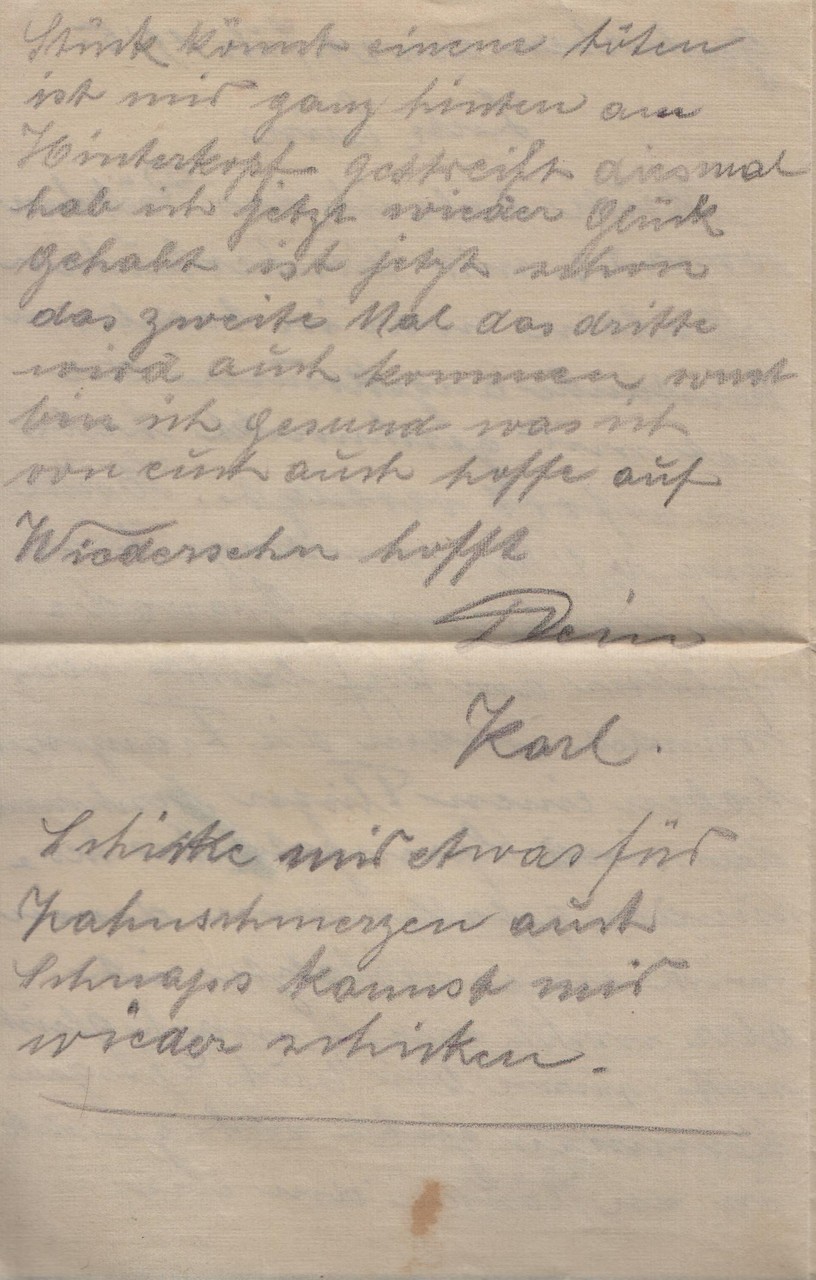 Stück könnt einem töten
ist mir ganz hinten am
Hinterkopf gestreift diesmal
hab ich jetzt wieder Glück
gehabt ist jetzt schon
das zweite Mal das dritte
wird auch kommen sonst
bin ich gesund was ich
von euch auch hoffe auf
Wiedersehn hofft
Dein
Karl.
Schicke mir etwas für
Zahnschmerzen auch
Schnaps kannst mir
wieder schicken.